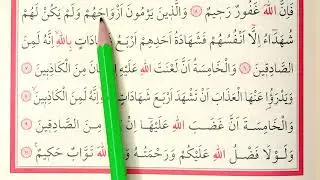 فَإِنَّ اللّٰهَ غَفُورٌ رَحِيمٌ ﴿٥﴾ وَالَّذِينَ يَرْمُونَ أَزْوَاجَهُمْ وَلَمْ يَكُنْ لَهُمْ
شُهَدَاءُ إِلَّا أَنْفُسُهُمْ فَشَهَادَةُ أَحَدِهِمْ أَرْبَعُ شَهَادَاتٍ بِاللّٰهِ إِنَّهُ لَمِنَ
الصَّادِقِينَ ﴿٦﴾ وَالْخَامِسَةُ أَنَّ لَعْنَتَ اللّٰهِ عَلَيْهِ إِنْ كَانَ مِنَ الْكَاذِبِينَ ﴿٧﴾
وَيَدْرَؤُا عَنْهَا الْعَذَابَ أَنْ تَشْهَدَ أَرْبَعَ شَهَادَاتٍ بِاللّٰهِ إِنَّهُ لَمِنَ الْكَاذِبِينَ ﴿٨﴾
وَالْخَامِسَةَ أَنَّ غَضَبَ اللّٰهِ عَلَيْهَا إِنْ كَانَ مِنَ الصَّادِقِينَ ﴿٩﴾
وَلَوْلَا فَضْلُ اللّٰهِ عَلَيْكُمْ وَرَحْمَتُهُ وَأَنَّ اللّٰهَ تَوَّابٌ حَكِيمٌ ﴿١٠﴾